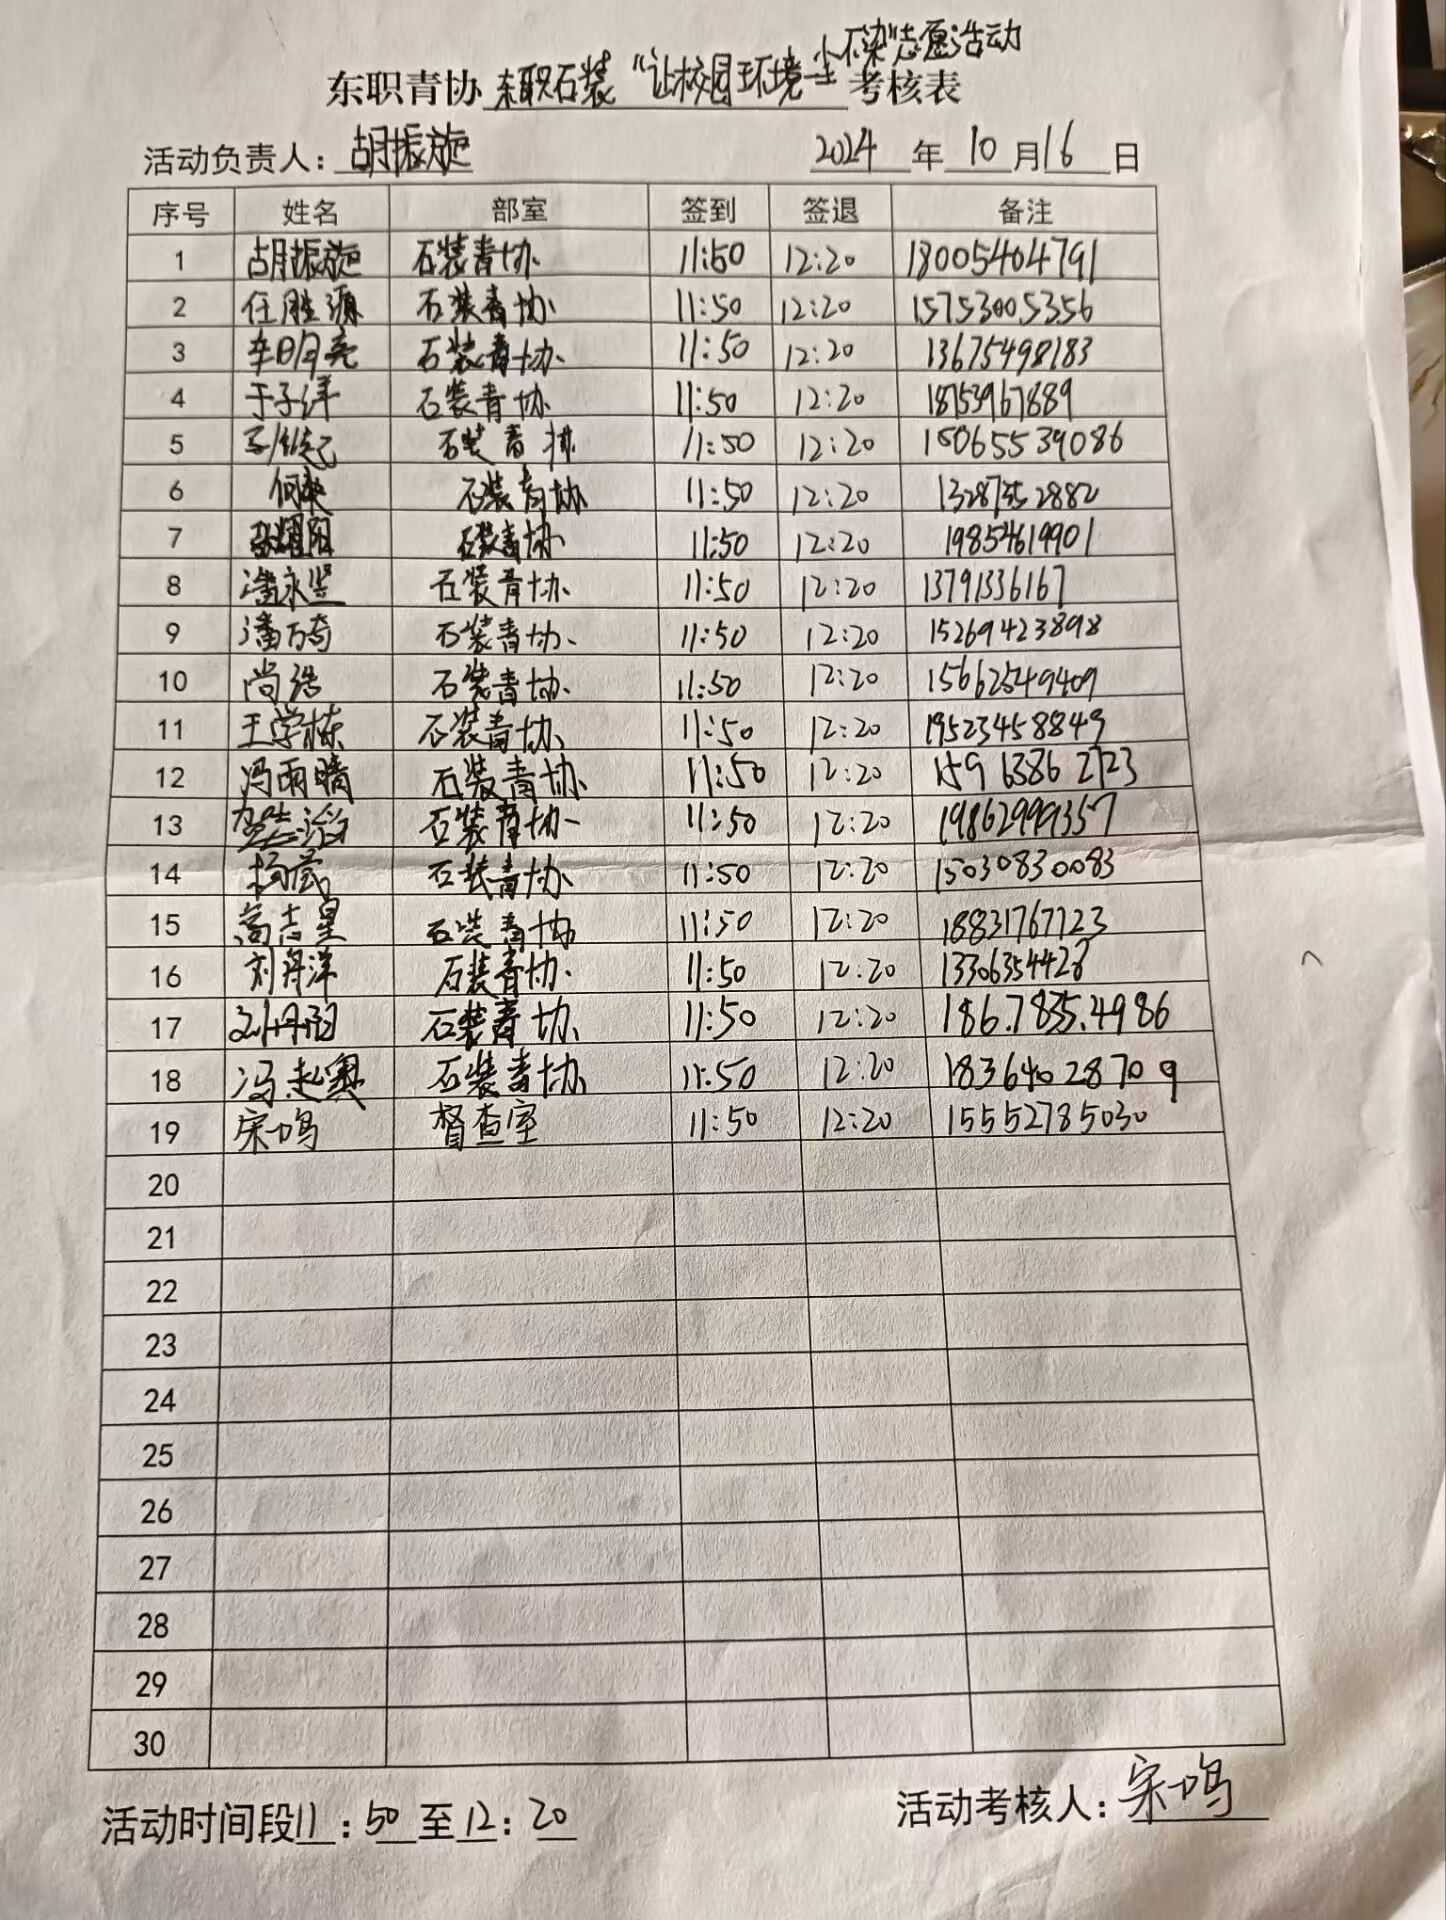 东职青协东职石装“让校园环境一尘不染”志愿活动考核表
活动负责人：胡振旋 2024年10月16日
序号 姓名 部室 签到 签退 备注
1 胡振旋 石装青协 11:50 12:20 18005404791
2 任胜源 石装青协 11:50 12:20 15753005356
3 车明亮 石装青协 11:50 12:20 13675498183
4 于子洋 石装青协 11:50 12:20 18753967889
5 石装青协 11:50 12:20 15065539086
6 何 石装青协 11:50 12:20 13287352882
7 张耀阳 石装青协 11:50 12:20 19854619901
8 潘永 石装青协 11:50 12:20 13791336167
9 潘万奇 石装青协 11:50 12:20 15269423898
10 尚浩 石装青协 11:50 12:20 15662549409
11 王学栋 石装青协 11:50 12:20 19523458849
12 冯雨晴 石装青协 11:50 12:20 159 6386 2723
13 石装青协 11:50 12:20 19862999357
14 杨 石装青协 11:50 12:20 15030830083
15 高志星 石装青协 11:50 12:20 18831767723
16 刘丹洋 石装青协 11:50 12:20 13306354428
17 刘丹雨 石装青协 11:50 12:20 186.7835.4986
18 冯赵奥 石装青协 11:50 12:20 18364028709
19 宋鸣 督查室 11:50 12:20 15552785030
20
21
22
23
24
25
26
27
28
29
30
活动时间段11：50至12：20 活动考核人：宋鸣